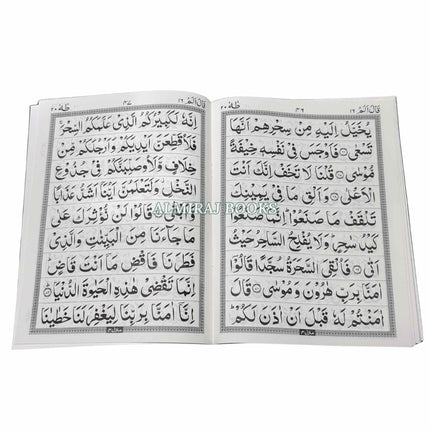 قَالَ اَلَمْ ١٦ ٣٦ طٰهٰ ٢٠
يُخَيَّلُ اِلَيْهِ مِنْ سِحْرِهِمْ اَنَّهَا
تَسْعٰى ۝ فَاَوْجَسَ فِيْ نَفْسِهٖ خِيْفَةً
مُّوْسٰى ۝ قُلْنَا لَا تَخَفْ اِنَّكَ اَنْتَ
الْاَعْلٰى ۝ وَاَلْقِ مَا فِيْ يَمِيْنِكَ
تَلْقَفْ مَا صَنَعُوْا ؕ اِنَّمَا صَنَعُوْا
كَيْدُ سٰحِرٍ ؕ وَلَا يُفْلِحُ السَّاحِرُ حَيْثُ
اَتٰى ۝ فَاُلْقِيَ السَّحَرَةُ سُجَّدًا قَالُوْٓا
اٰمَنَّا بِرَبِّ هٰرُوْنَ وَمُوْسٰى ۝ قَالَ
اٰمَنْتُمْ لَهٗ قَبْلَ اَنْ اٰذَنَ لَكُمْ ؕ
قَالَ اَلَمْ ١٦ ٣٧ طٰهٰ ٢٠
اِنَّهٗ لَكَبِيْرُكُمُ الَّذِيْ عَلَّمَكُمُ السِّحْرَ ۚ
فَلَاُقَطِّعَنَّ اَيْدِيَكُمْ وَاَرْجُلَكُمْ مِّنْ
خِلَافٍ وَّلَاُوصَلِّبَنَّكُمْ فِيْ جُذُوْعِ
النَّخْلِ وَلَتَعْلَمُنَّ اَيُّنَآ اَشَدُّ عَذَابًا
وَّاَبْقٰى ۝ قَالُوْا لَنْ نُّؤْثِرَكَ عَلٰى
مَا جَآءَنَا مِنَ الْبَيِّنٰتِ وَالَّذِيْ
فَطَرَنَا فَاقْضِ مَآ اَنْتَ قَاضٍ ؕ
اِنَّمَا تَقْضِيْ هٰذِهِ الْحَيٰوةَ الدُّنْيَا ۝
اِنَّآ اٰمَنَّا بِرَبِّنَا لِيَغْفِرَ لَنَا خَطٰيٰنَا
ALMIRAJ BOOKS